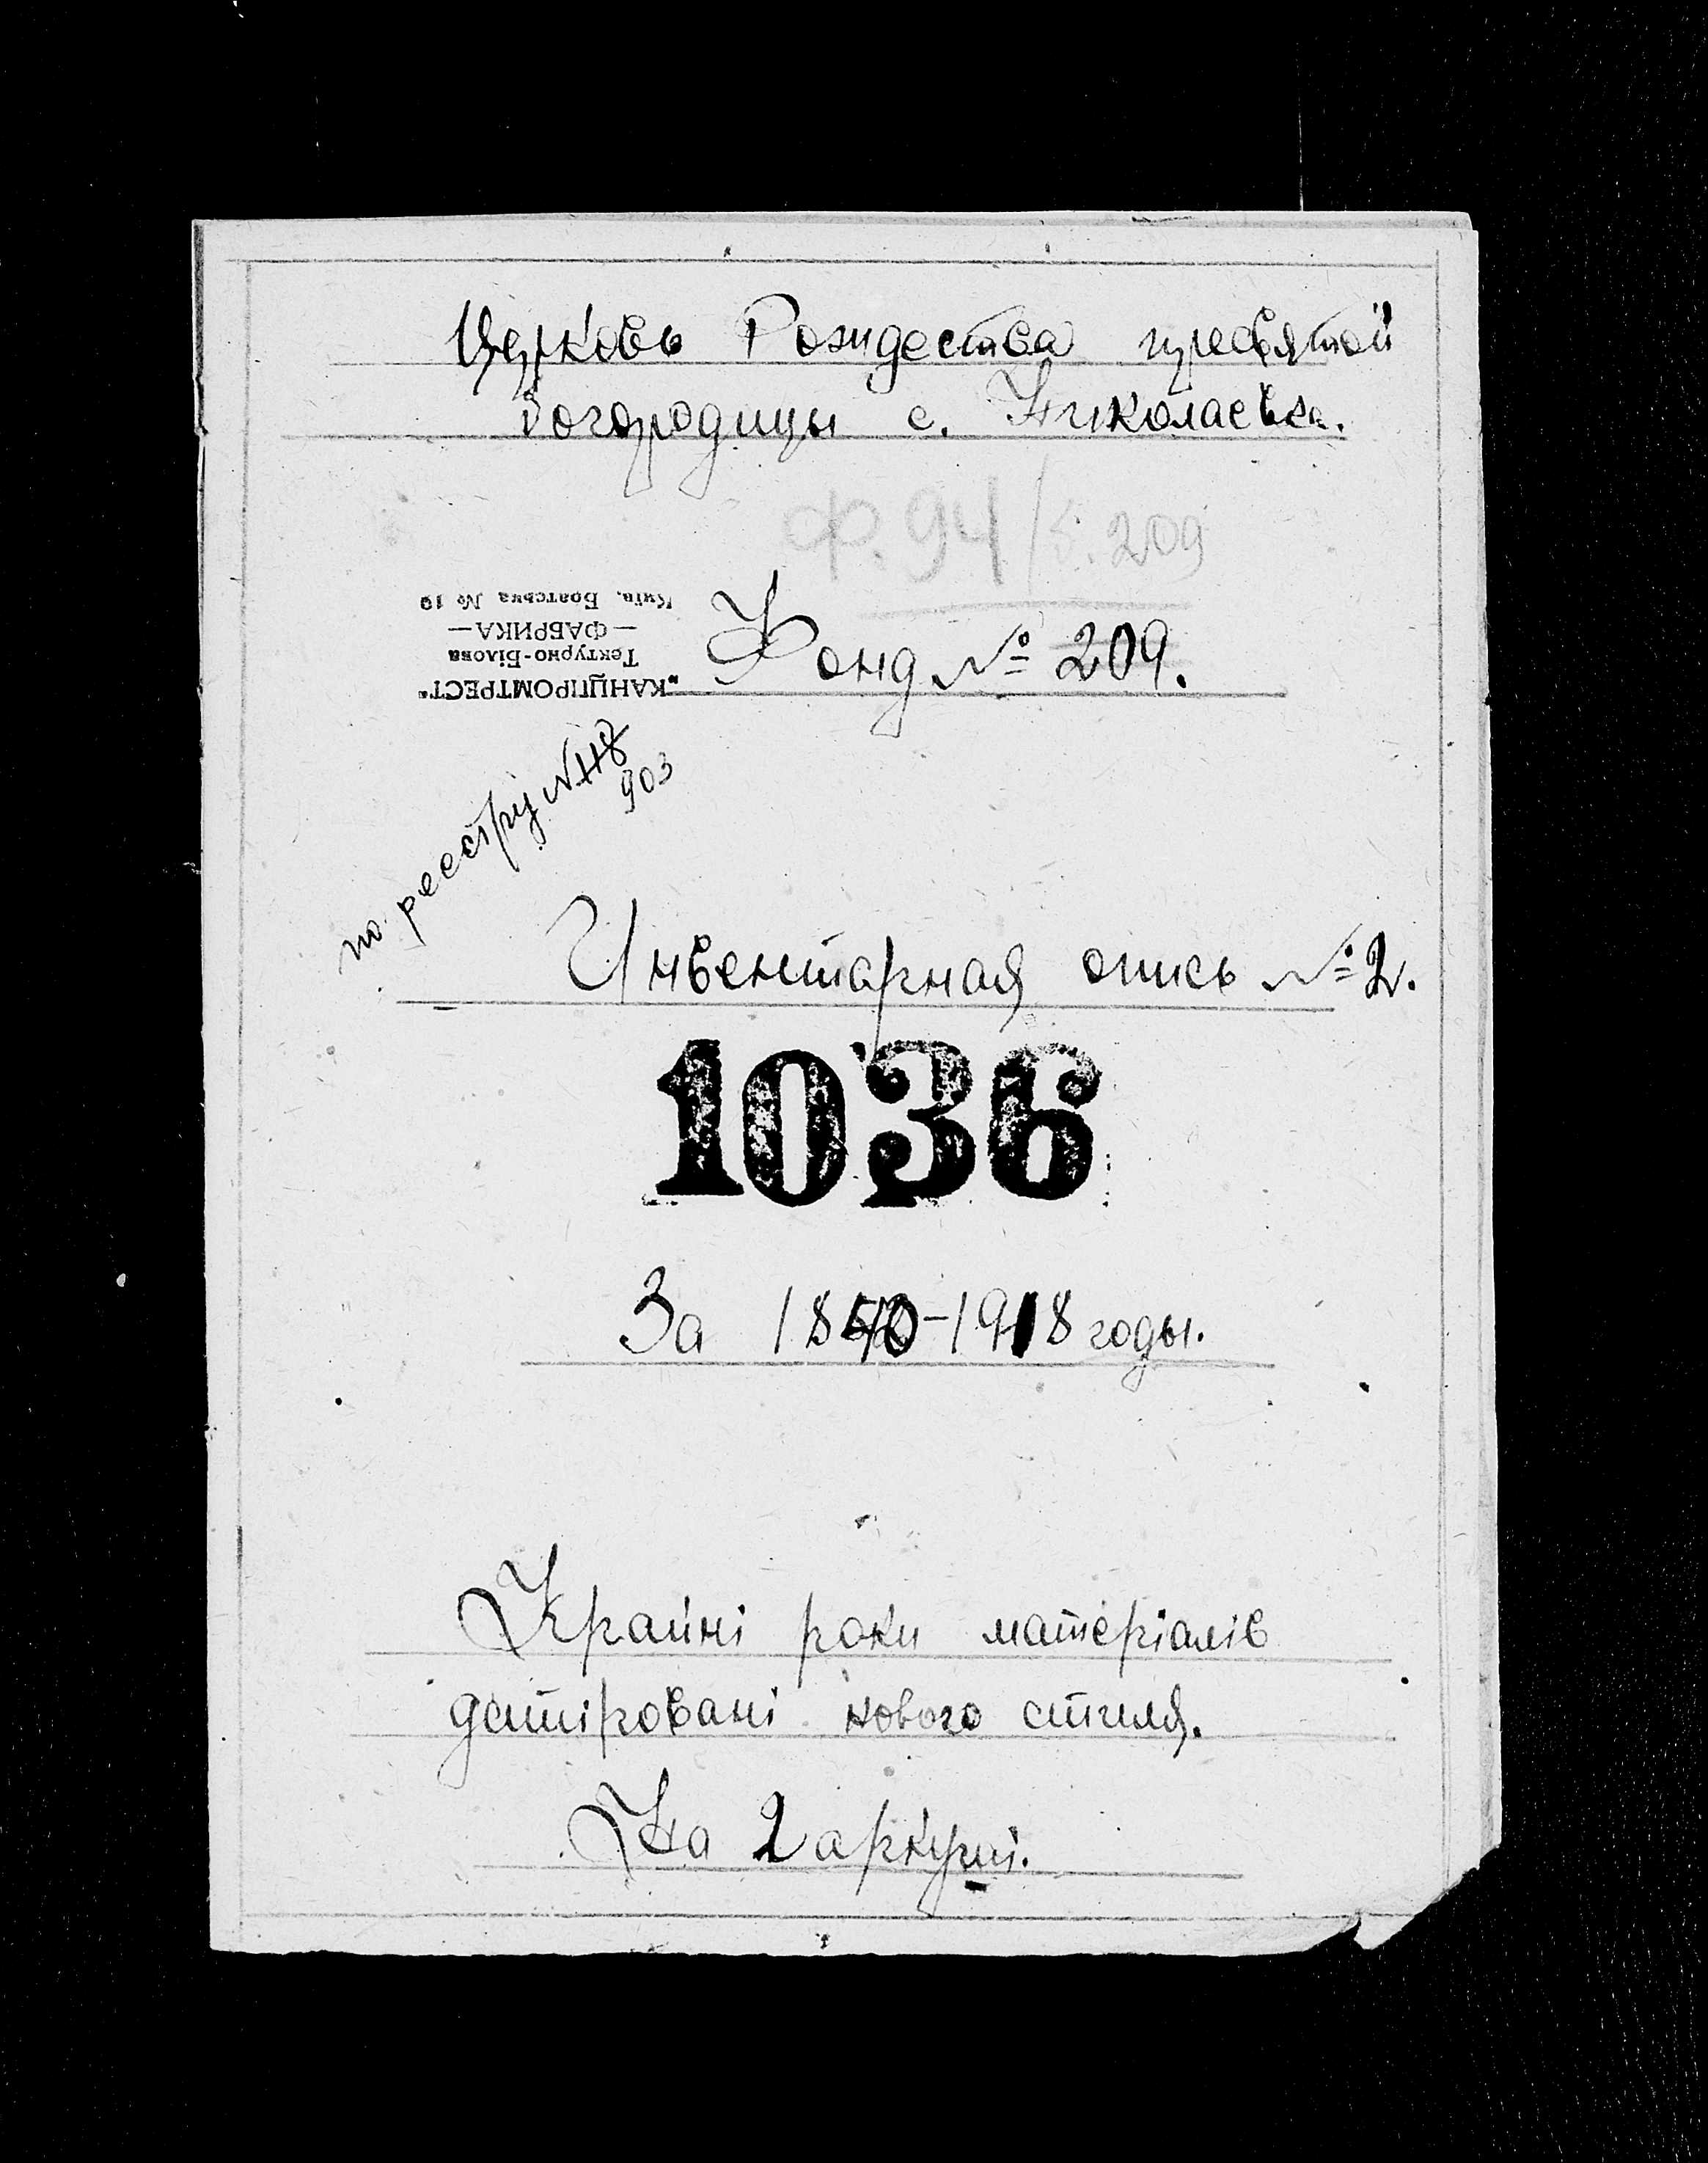 Церковь Рождества пресвятой
Богородицы с. Николаевка.
Ф. 94/5. 209
"КАНЦПРОМТРЕСТ"
Тектурно-Білова
—ФАБРИКА—
Київ, Братська № 19
Фонд № 209.
по реестру N 118
903
Инвентарная опись № 2.
1036
За 1840-1918 годы.
Крайні роки матеріалів
датіровані нового стиля.
На 2 аркуші.